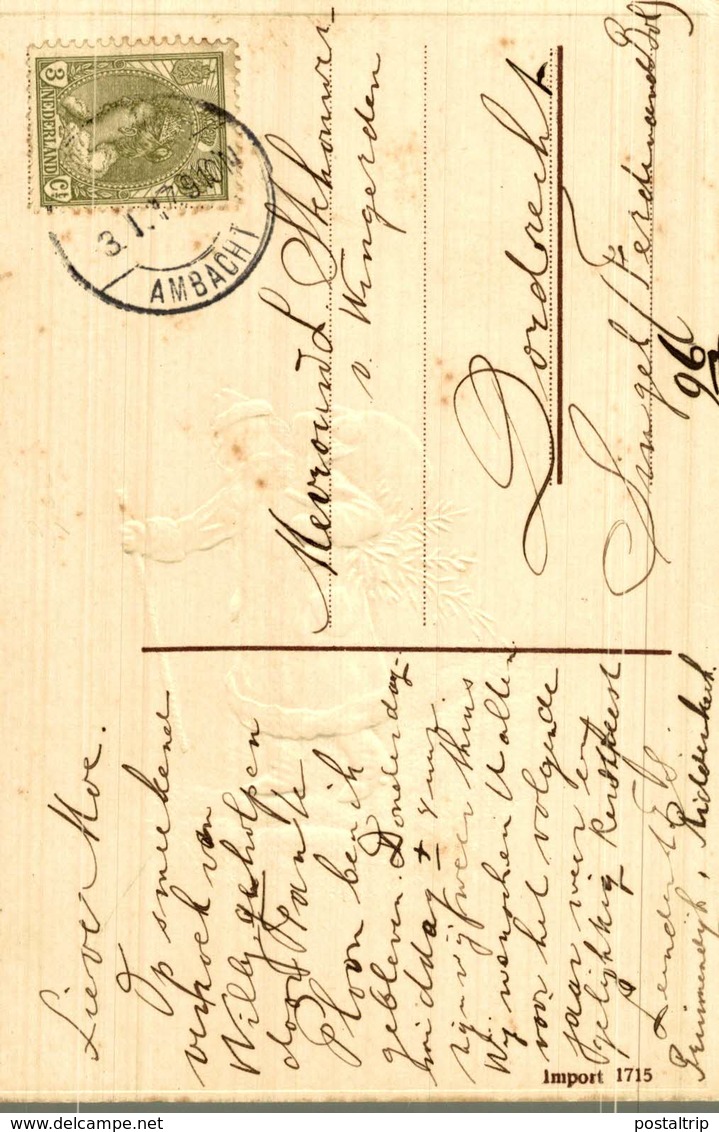 Lieve Moe.
Op smeekend
verzoek van
Willy geholpen
door Tante
Ploon ben ik
gebleven. Donderdag-
middag ± 4 uur
zijn wij weer thuis
Wij wenschen U allen
voor het volgende
jaar weer een
gelukkig kerstfeest
Leendert
Pruimendijk, Ridderkerk.
Mevrouw L. Schouw-
v. Wingerden
Dordrecht
Singel (Ferdinand Bol)
96
3 NEDERLAND Ct
AMBACHT
Import 1715
postaltrip
www.delcampe.net